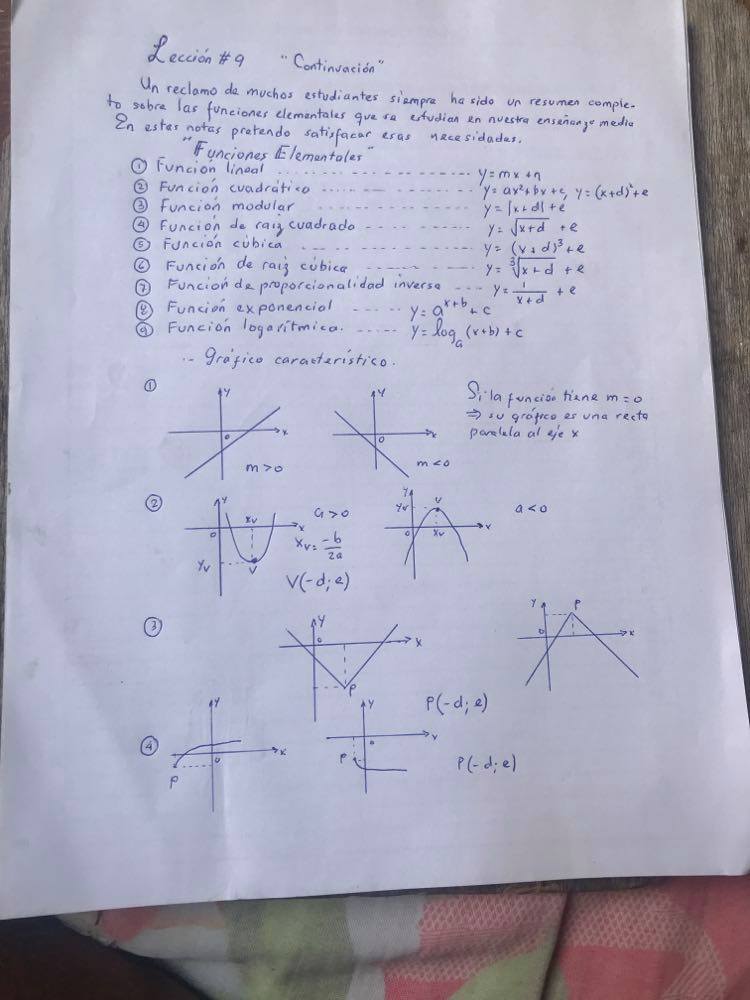 Lección #9 "Continuación"
Un reclamo de muchos estudiantes siempre ha sido un resumen comple-
to sobre las funciones elementales que se estudian en nuestra enseñanza media
En estas notas pretendo satisfacer esas necesidades.
"Funciones Elementales"
① Función lineal ---------- y=mx+n
② Función cuadrático ---------- y=ax²+bx+c, y=(x+d)²+e
③ Función modular ---------- y=|x+d|+e
④ Función de raiz cuadrado ---------- y=√(x+d) +e
⑤ Función cúbica ---------- y=(x+d)³+e
⑥ Función de raiz cúbica ---------- y=∛(x+d) +e
⑦ Función de proporcionalidad inversa --- y=1/(x+d) +e
⑧ Función exponencial ----- y=a^(x+b)+c
⑨ Función logarítmica. ----- y=logₐ(x+b)+c
.- Gráfico característico.
①
y
x
o
m>o
y
x
o
m<o
Si la función tiene m=o
⇒ su gráfico es una recta
paralela al eje x
②
y
x
o
xv
yv
V
a>o
xv=-b/2a
V(-d;e)
y
yv
V
o
xv
x
a<o
③
y
o
x
P
P(-d;e)
y
P
o
x
④
y
x
o
P
y
x
o
P
P(-d;e)